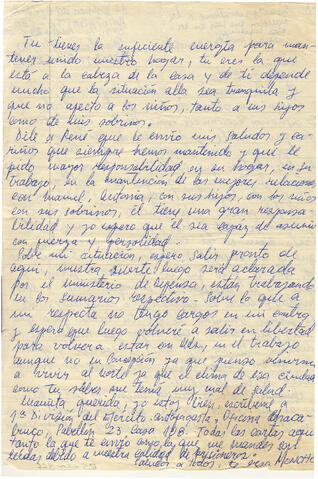 Tu tienes la suficiente energía para man-
tener unido nuestro hogar, tu eres la que
está a la cabeza de la casa y de ti depende
mucho que la situación allá sea tranquila y
que no afecte a los niños, tanto a mis hijos
como de mis sobrinos.
Dile a René que le envío mis saludos y ca-
riños que siempre hemos mantenido y que le
pido mayor responsabilidad en su hogar, en su
trabajo, en la mantención de las mejores relaciones
con Manuel, Victoria, con sus hijos, con los niños
con sus sobrinos, él tiene una gran responsa-
bilidad y yo espero que él sea capaz de asumir
con fuerza y
Sobre mi situación, espero salir pronto de
aquí, nuestra suerte luego será aclarada
por el ministerio de Defensa, están trabajando
en los sumarios respectivo. Sobre lo que a
mi respecta no tengo cargos en mi contra
y espero que luego volveré a salir en libertad
para volver a estar en Uds, en el trabajo
aunque no en Concepción ya que pienso
a vivir al norte ya que el clima de esa ciudad
como tu sabes me tenía muy mal de salud.
Mamita querida, yo estoy bien, escribeme a
1ª División del Ejército. Antofagasta, Oficina Chaca-
buco, Pabellón 23 Casa 108. Todas las cartas aquí
tanto la que te envío como la que me mandes son
leídas debido a nuestra calidad de prisioneros.
Saludos a todos, tu